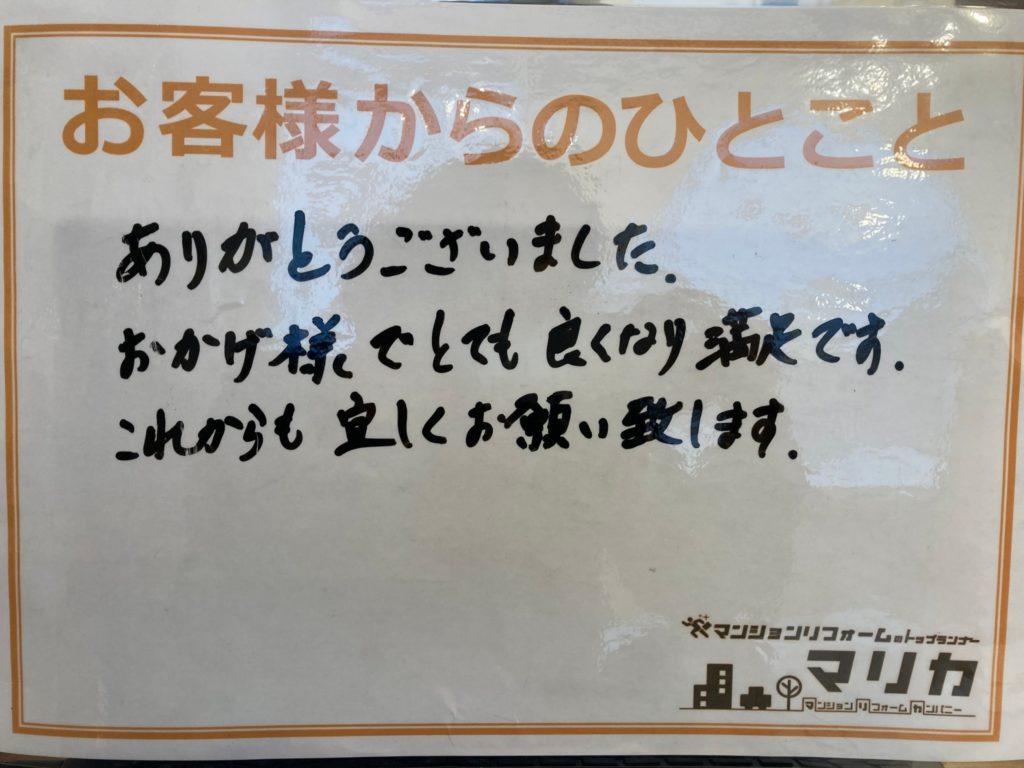 お客様からのひとこと
ありがとうございました.
おかげ様でとても良くなり満足です.
これからも宜しくお願い致します.
マンションリフォームのトップランナー
マリカ
マンションリフォームカンパニー